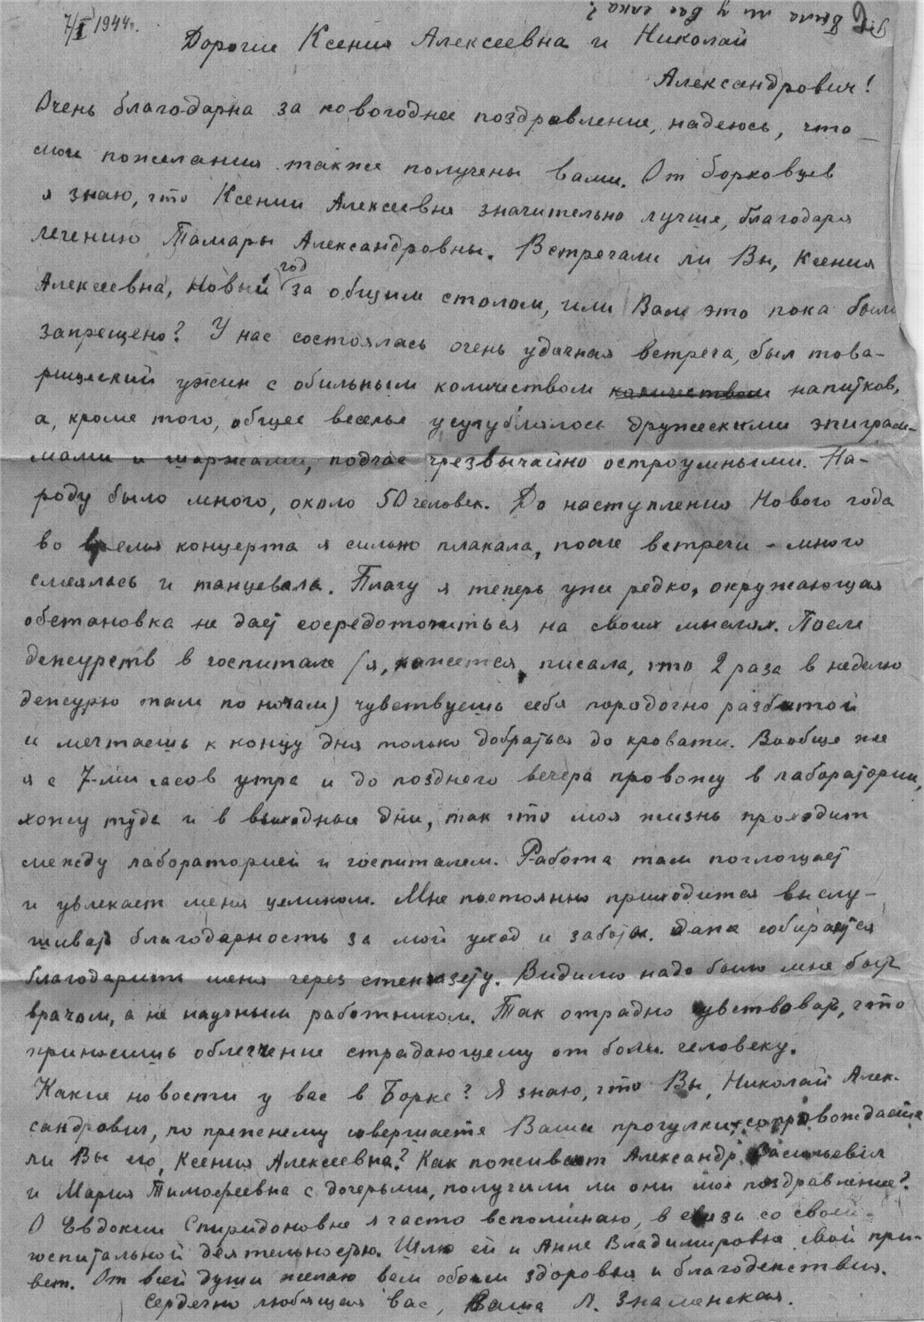 7/I 1944г.
Была ли у вас ёлка?
Дорогие Ксения Алексеевна и Николай
Александрович!
Очень благодарна за новогоднее поздравление, надеюсь, что
мои пожелания также получены вами. От борковцев
я знаю, что Ксении Алексеевне значительно лучше, благодаря
лечению Тамары Александровны. Встречали ли Вы, Ксения
Алексеевна, Новый год за общим столом, или Вам это пока было
запрещено? У нас состоялась очень удачная встреча, был това-
рищеский ужин с обильным количеством напитков,
а, кроме того, общее веселье усугублялось дружескими эпиграм-
мами и шаржами, подчас чрезвычайно остроумными. На-
роду было много, около 50 человек. До наступления Нового года
во время концерта я сильно плакала, после встречи - много
смеялась и танцевала. Плачу я теперь уже редко, окружающая
обстановка не дает сосредоточиться на своих мыслях. После
дежурств в госпитале (я, кажется, писала, что 2 раза в неделю
дежурю там по ночам) чувствуешь себя порядочно разбитой
и мечтаешь к концу дня только добраться до кровати. Вообще же
я с 7-ми часов утра и до позднего вечера провожу в лаборатории,
хожу туда и в выходные дни, так что моя жизнь проходит
между лабораторией и госпиталем. Работа там поглощает
и увлекает меня целиком. Мне постоянно приходится выслу-
шивать благодарность за мой уход и заботы. Даже собираются
благодарить меня через стенгазету. Видимо надо было мне быть
врачом, а не научным работником. Так отрадно чувствовать, что
приносишь облегчение страдающему от боли человеку.
Какие новости у вас в Борке? Я знаю, что Вы, Николай Алек-
сандрович, по прежнему совершаете Ваши прогулки, сопровождаете
ли Вы его, Ксения Алексеевна? Как поживают Александр Васильевич
и Мария Тимофеевна с дочерьми, получили ли они мое поздравление?
О Евдокии Спиридоновне я часто вспоминаю, в связи со своей
госпитальной деятельностью. Шлю ей и Анне Владимировне свой при-
вет. От всей души желаю вам обоим здоровья и благоденствия.
Сердечно любящая вас, Ваша Л. Знаменская.